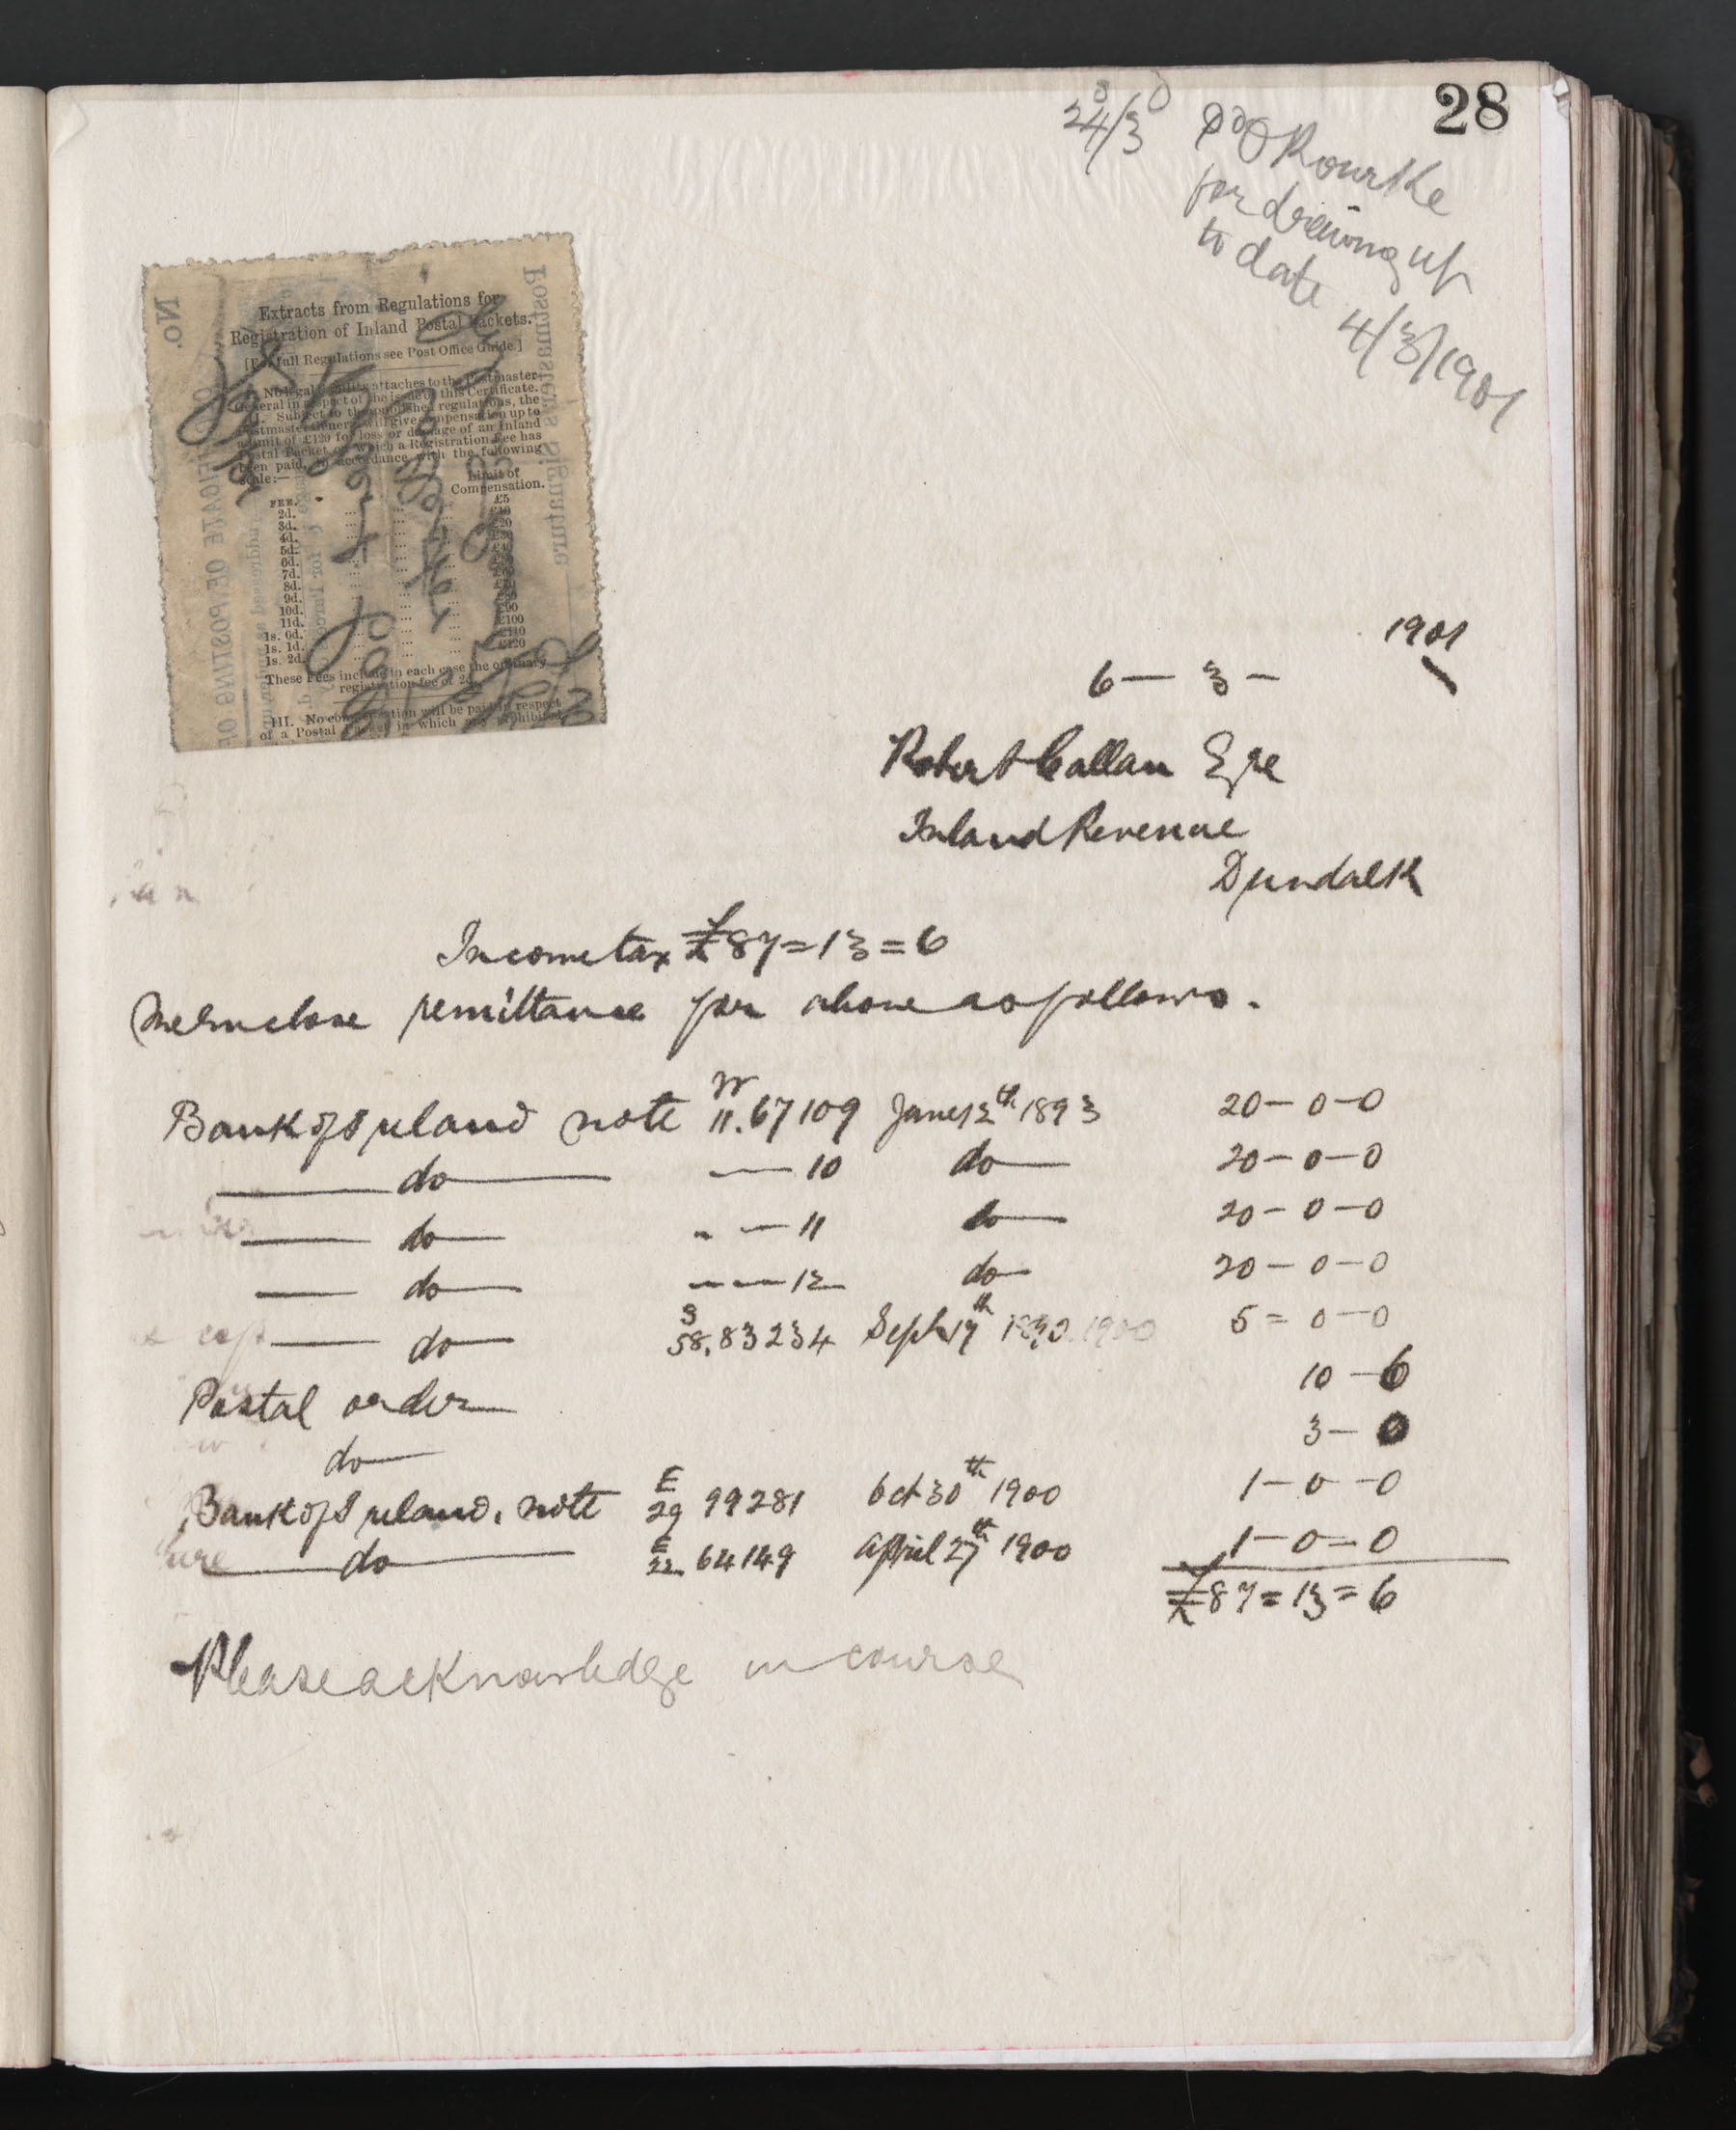 28
24/3
O Rourke
for drawing up
to date 4/3/1901
Extracts from Regulations for
Registration of Inland Postal Packets.
[For full Regulations see Post Office Guide.]
No legal attaches to the Postmaster-
General in respect of the issue of this Certificate.
II. Subject to the published regulations, the
Postmaster General will give compensation up to
a limit of £120 for loss or damage of an Inland
Postal Packet for which a Registration Fee has
been paid, in accordance with the following
scale:—
Limit of
FEE. Compensation.
2d. £5
3d. £10
4d. £20
5d.
6d.
7d.
8d.
9d.
10d. £90
11d. £100
1s. 0d. £110
1s. 1d. £120
1s. 2d.
These Fees include in each case the ordinary
registration fee of 2d.
III. No compensation will be paid in respect
of a Postal Packet in which any prohibited
No.
Postmaster's Signature
CERTIFICATE OF POSTING OF
1901
6 — 3 —
Robert Callan Esqre
Inland Revenue
Dundalk
Income tax £87=13=6
We enclose remittance for above as follows.
Bank of Ireland note 11.67109 Jany 12th 1893 20-0-0
do — 10 do 20-0-0
do — 11 do 20-0-0
do — 12 do 20-0-0
do S 58.83234 Sept 17th 1900 5=0-0
Postal order 10-6
do 3-0
Bank of Ireland. note E 29 99281 Oct 30th 1900 1-0-0
do E 22 64149 April 27th 1900 1-0-0
£87=13=6
Please acknowledge in course